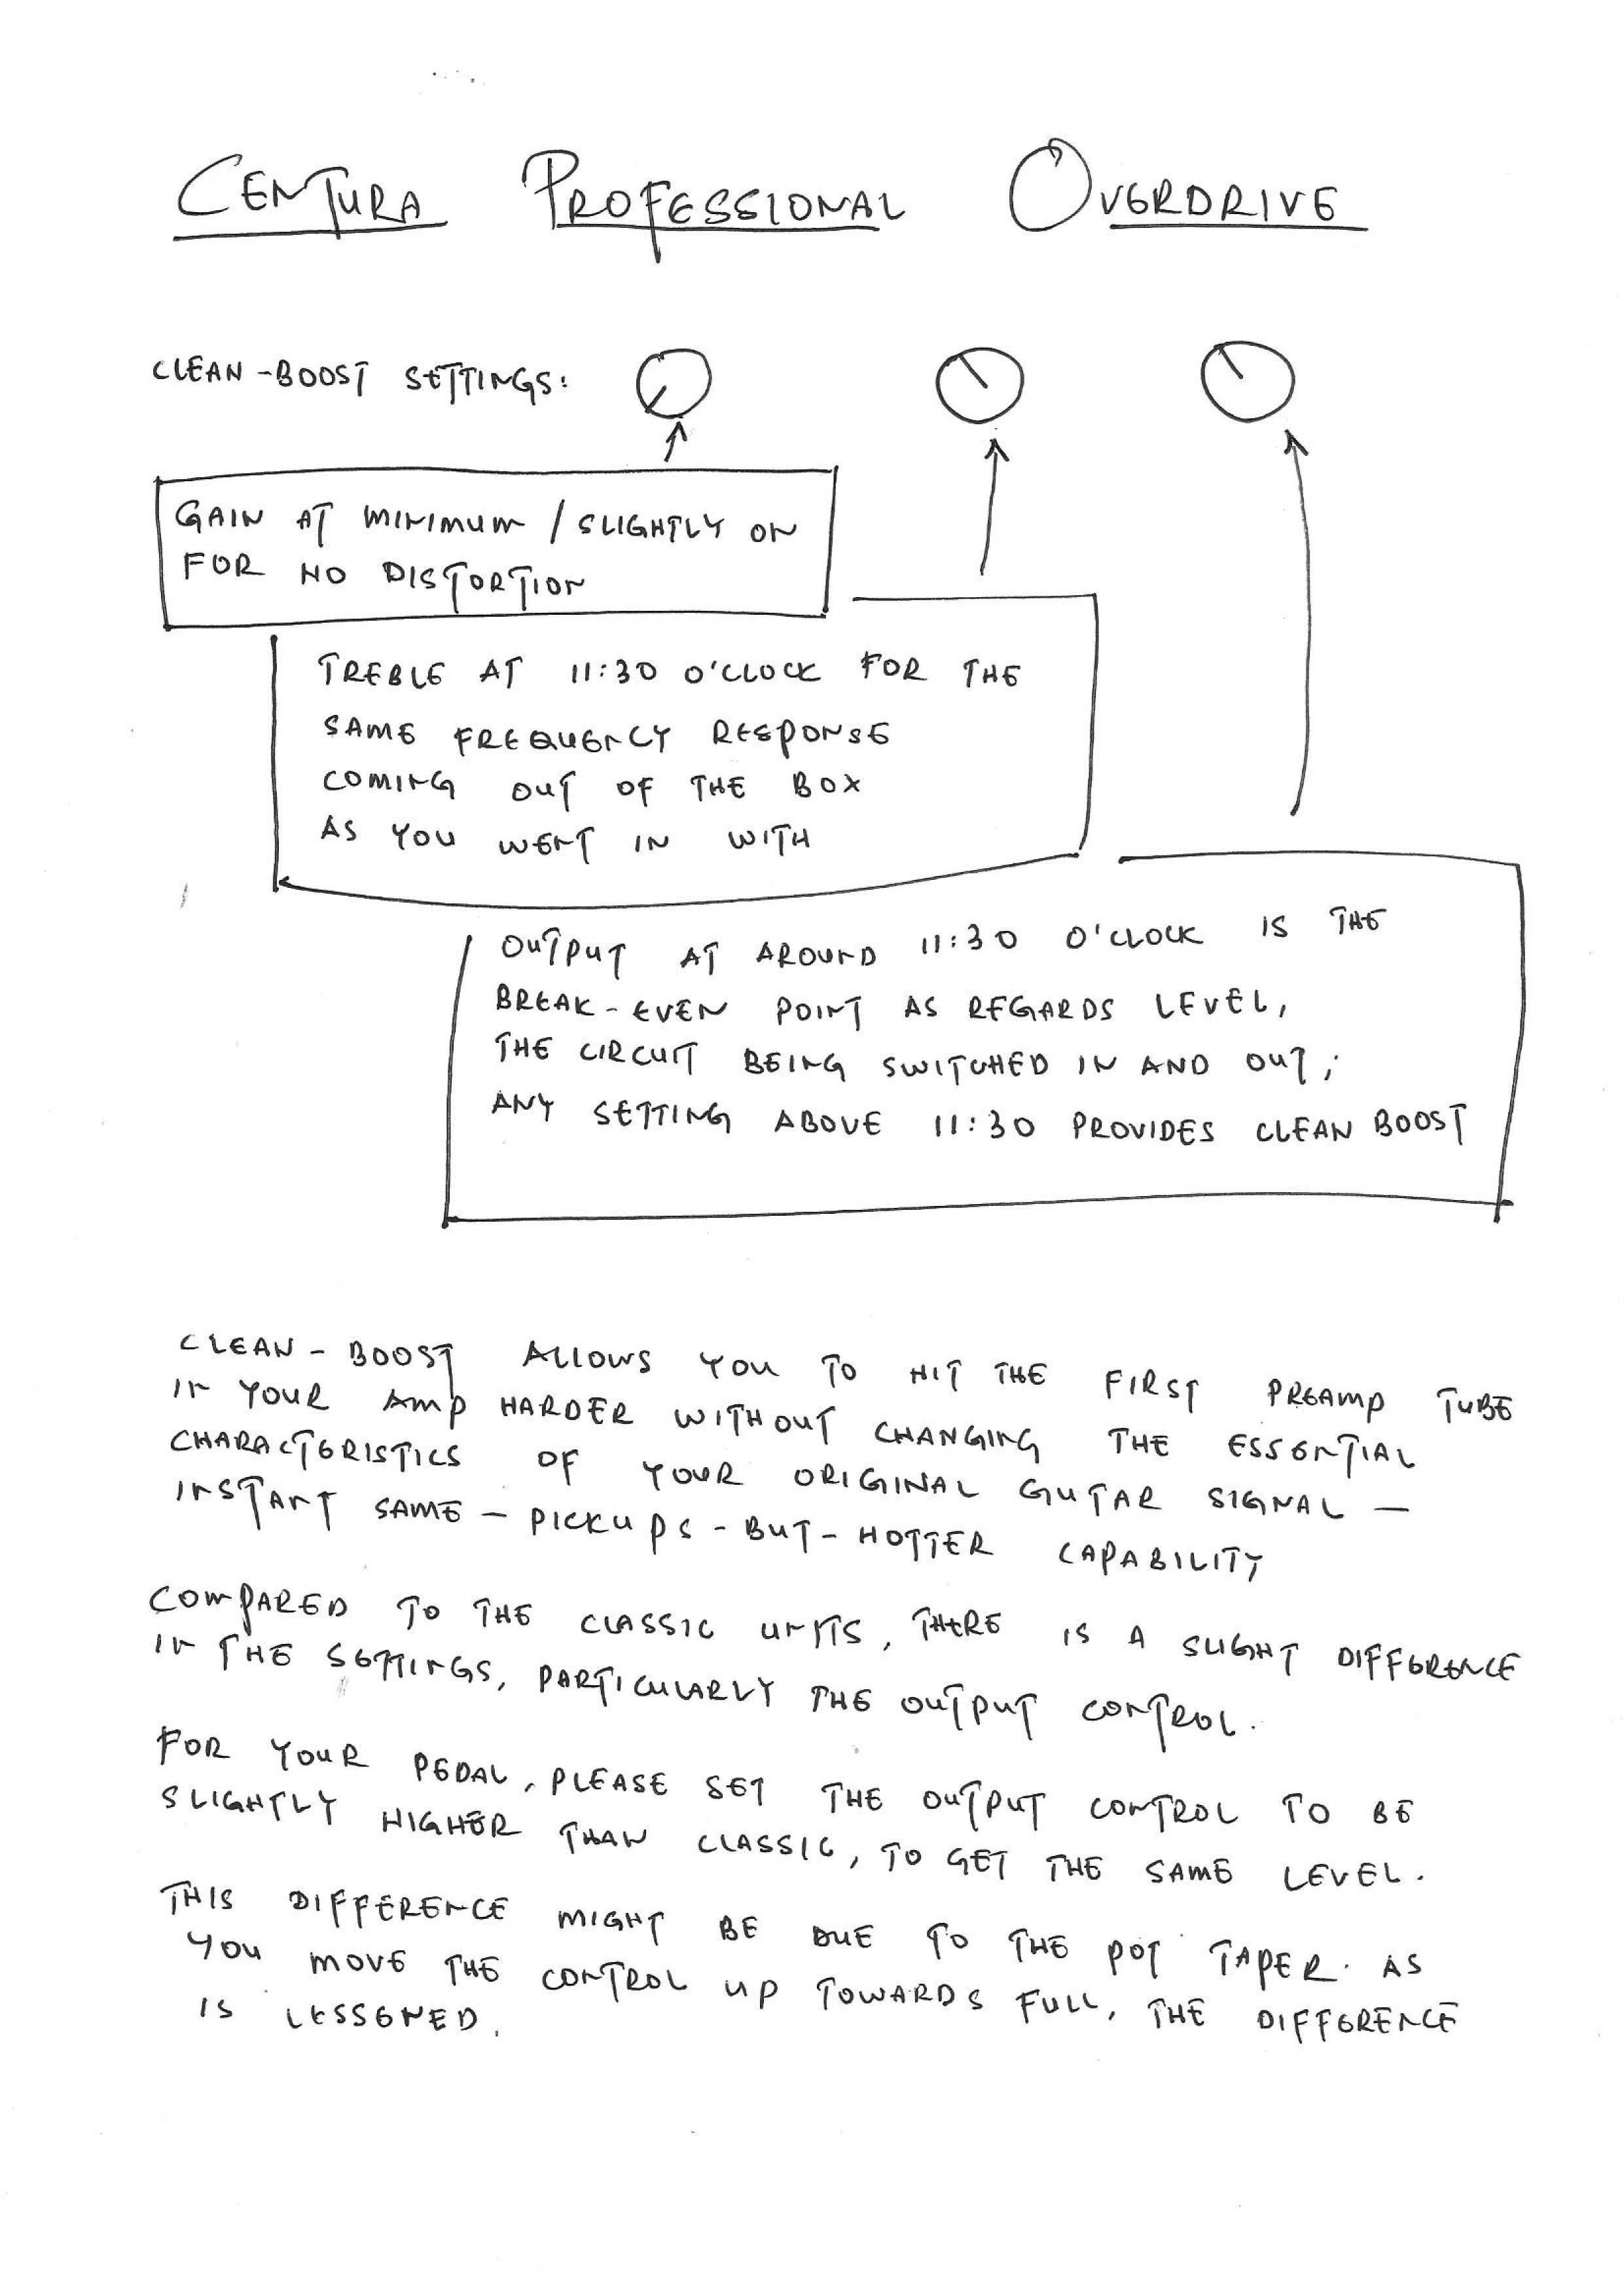 CENTURA PROFESSIONAL OVERDRIVE
CLEAN-BOOST SETTINGS:
GAIN AT MINIMUM / SLIGHTLY ON
FOR NO DISTORTION
TREBLE AT 11:30 O'CLOCK FOR THE
SAME FREQUENCY RESPONSE
COMING OUT OF THE BOX
AS YOU WENT IN WITH
OUTPUT AT AROUND 11:30 O'CLOCK IS THE
BREAK-EVEN POINT AS REGARDS LEVEL,
THE CIRCUIT BEING SWITCHED IN AND OUT;
ANY SETTING ABOVE 11:30 PROVIDES CLEAN BOOST
CLEAN-BOOST ALLOWS YOU TO HIT THE FIRST PREAMP TUBE
IN YOUR AMP HARDER WITHOUT CHANGING THE ESSENTIAL
CHARACTERISTICS OF YOUR ORIGINAL GUTAR SIGNAL —
INSTANT SAME-PICKUPS-BUT-HOTTER CAPABILITY
COMPARED TO THE CLASSIC UNITS, THERE IS A SLIGHT DIFFERENCE
IN THE SETTINGS, PARTICULARLY THE OUTPUT CONTROL.
FOR YOUR PEDAL, PLEASE SET THE OUTPUT CONTROL TO BE
SLIGHTLY HIGHER THAN CLASSIC, TO GET THE SAME LEVEL.
THIS DIFFERENCE MIGHT BE DUE TO THE POT TAPER. AS
YOU MOVE THE CONTROL UP TOWARDS FULL, THE DIFFERENCE
IS LESSENED.